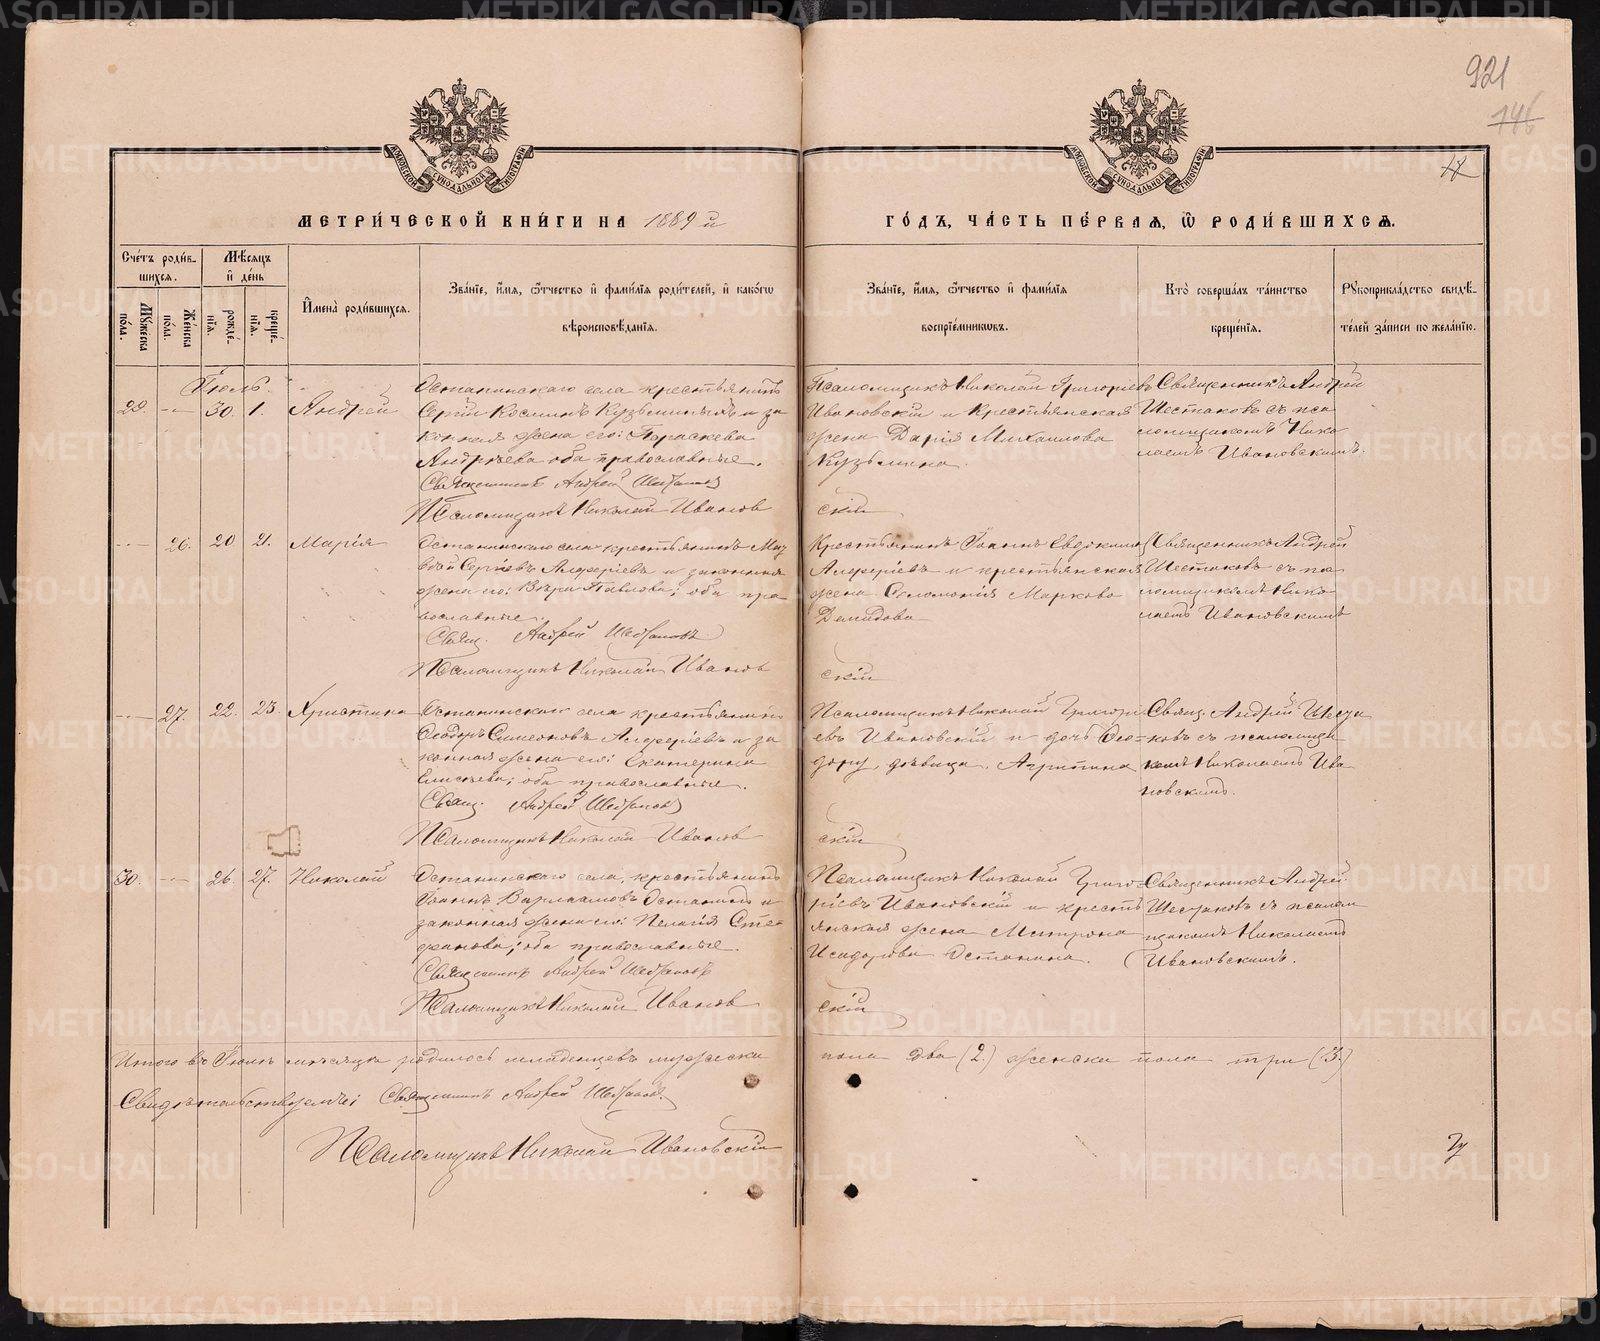 921
146
МОСКОВСКОЙ СУНОДАЛЬНОЙ ТИПОГРАФІИ
МОСКОВСКОЙ СУНОДАЛЬНОЙ ТИПОГРАФІИ
МЕТРИ́ЧЕСКОЙ КНИ́ГИ НА 1889 й
ГО́ДЪ, ЧА́СТЬ ПЕ́РВАЯ, Ѡ РОДИ́ВШИХСЯ.
Сче́тъ роди́вшихся.
Му́жеска по́ла.
Же́нска по́ла.
Мѣ́сяцъ и де́нь
рожде́нія.
креще́нія.
Имена̀ роди́вшихся.
Зва́ніе, и́мя, о́тчество и фами́лія роди́телей, и како́гѡ
вѣроисповѣ́данія.
Зва́ніе, и́мя, о́тчество и фами́лія
воспріе́мниковъ.
Кто̀ соверша́лъ та́инство
креще́нія.
Рукоприкла́дство свидѣ́-
телей за́писи по жела́нію.
Іюль
Останинскаго села крестьянинъ
29. — 30. 1. Андрей Сергій Косминъ Кузьминыхъ и за
конная жена его: Параскева
Андреева оба православные.
Священникъ Андрей Шестаковъ
Псаломщикъ Николай Иванов
Псаломщикъ Николай Григорьевъ
Ивановскій и Крестьянская
жена Дарія Михаилова
Кузьмина.
скій
Священникъ Андрей
Шестаковъ съ пса
ломщикомъ Нико
лаемъ Ивановскимъ.
— 26. 20 21. Марія Останинскаго села крестьянинъ Мат
вѣй Сергіевъ Алферіевъ и законная
жена его: Вѣра Павлова; оба пра
вославные.
Свящ. Андрей Шестаковъ
Псаломщикъ Николай Иванов
Крестьянинъ Іоаннъ Евдокимовъ
Алферіевъ и крестьянская
жена Соломонія Маркова
Демидова
скій
Священникъ Андрей
Шестаковъ съ пса
ломщикомъ Нико
лаемъ Ивановскимъ
— 27. 22. 23. Христина Останинскаго села крестьянинъ
Ѳеодоръ Симеоновъ Алферіевъ и за
конная жена его: Екатерина
Елисѣева; оба православные.
Свящ. Андрей Шестаковъ
Псаломщикъ Николай Иванов
Псаломщикъ Николай Григорі
евъ Ивановскій и дочь Ѳео=
дору, дѣвица. Агрипина
скій
Свящ. Андрей Шеста
ковъ съ псаломщи
комъ Николаемъ Ива
новскимъ.
30. — 26. 27. Николай Останинскаго села, крестьянинъ
Іоаннъ Варлаамовъ Останинъ и
законная жена его: Пелагія Сте
фанова; оба православные.
Священникъ Андрей Шестаковъ
Псаломщикъ Николай Иванов
Псаломщикъ Николай Григо
ріевъ Ивановскій и кресть
янская жена Матрона
Исидорова Останина.
скій
Священникъ Андрей
Шестаковъ съ псалом
щикомъ Николаемъ
Ивановскимъ.
Итого въ Іюлѣ мѣсяцѣ родилось младенцевъ мужеска пола два (2.) женска пола три (3.)
Свидѣтельствуемъ: Священникъ Андрей Шестаковъ.
Псаломщикъ Николай Ивановскій
METRIKI.GASO-URAL.RU